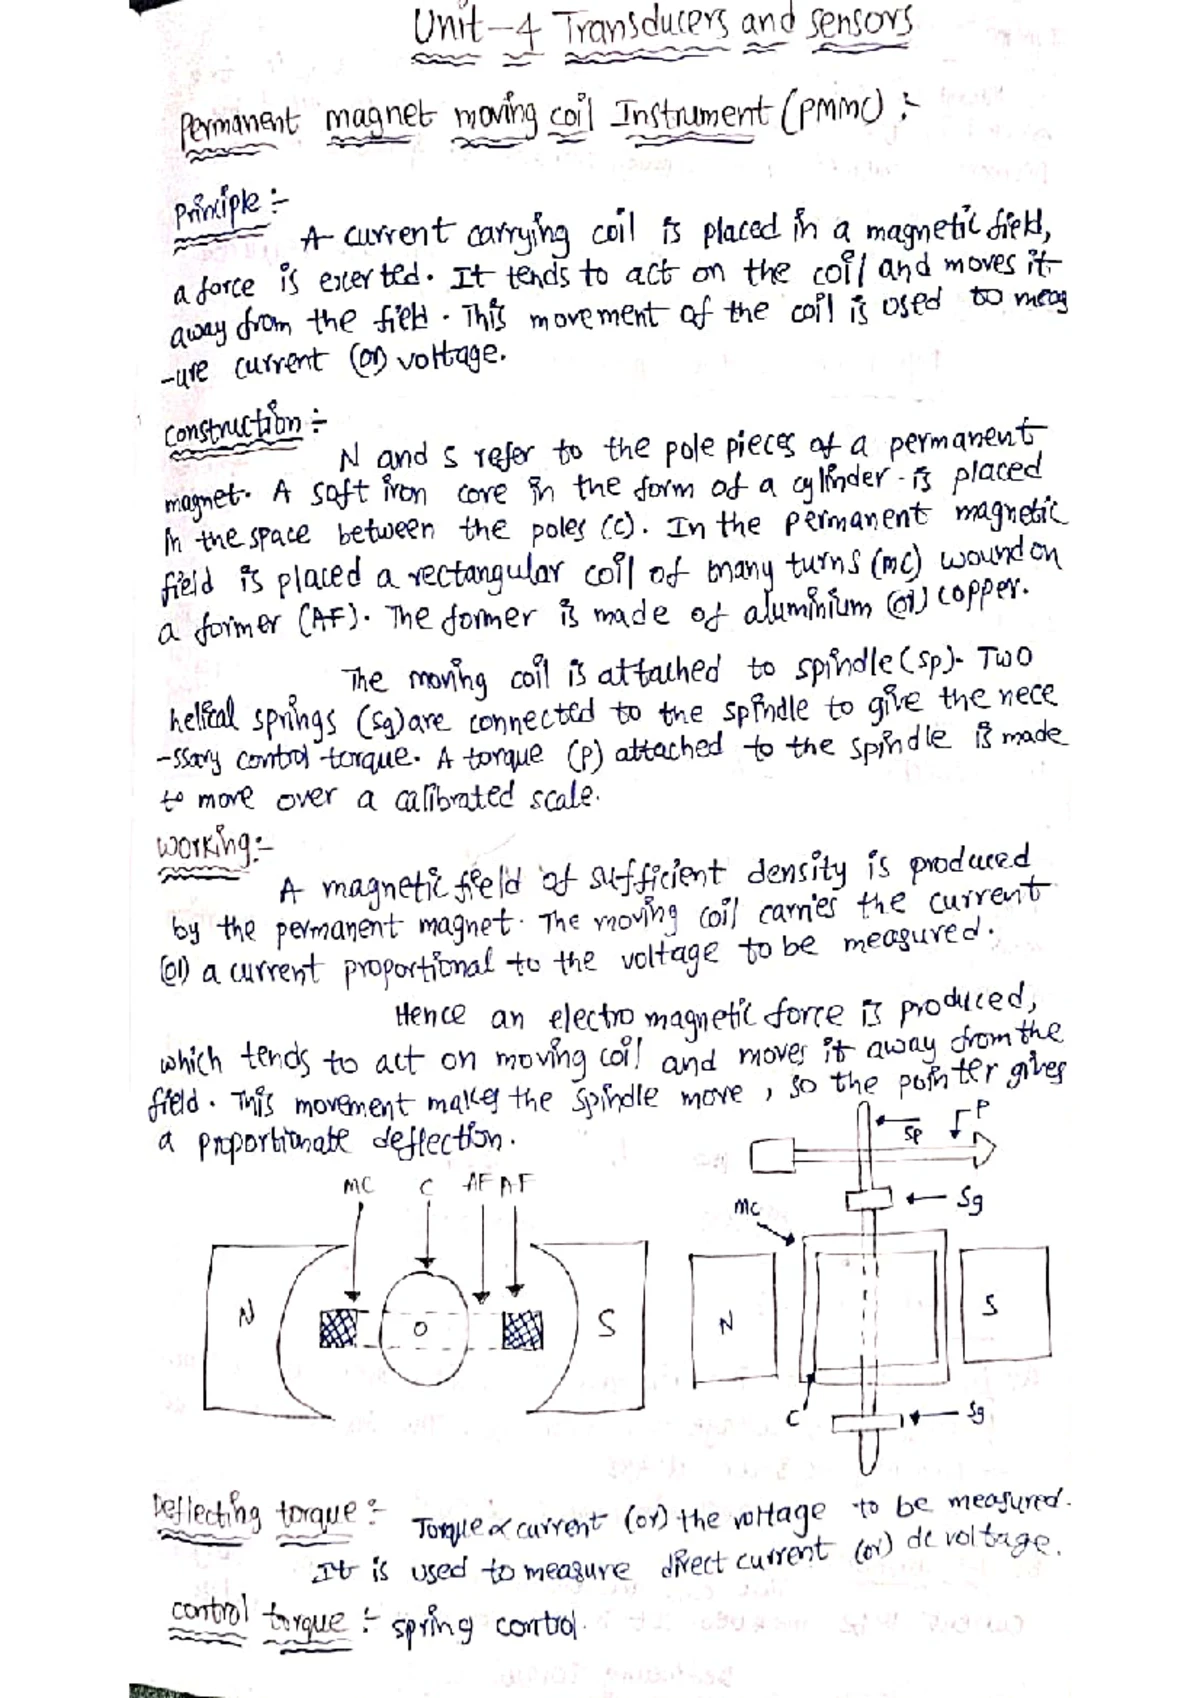 Unit-4 Transducers and sensors
Permanent magnet moving coil Instrument (PMMC) :-
Principle :-
A current carrying coil is placed in a magnetic field,
a force is exerted. It tends to act on the coil and moves it
away from the field. This movement of the coil is used to meas
-ure current (or) voltage.
construction :-
N and S refer to the pole pieces of a permanent
magnet. A soft iron core in the form of a cylinder is placed
in the space between the poles (C). In the permanent magnetic
field is placed a rectangular coil of many turns (mc) wound on
a former (AF). The former is made of aluminium (or) copper.
The moving coil is attached to spindle (sp). Two
helical springs (sg) are connected to the spindle to give the nece
-ssary control torque. A torque (P) attached to the spindle is made
to move over a calibrated scale.
Working:-
A magnetic field of sufficient density is produced
by the permanent magnet. The moving coil carries the current
(or) a current proportional to the voltage to be measured.
Hence an electro magnetic force is produced,
which tends to act on moving coil and moves it away from the
field. This movement makes the spindle move, so the pointer gives
a proportionate deflection.
P
SP
MC C AF AF
Sg
MC
N O S
N S
C
Sg
Deflecting torque :- Torque ∝ current (or) the voltage to be measured.
It is used to measure direct current (or) dc voltage.
control torque :- spring control.